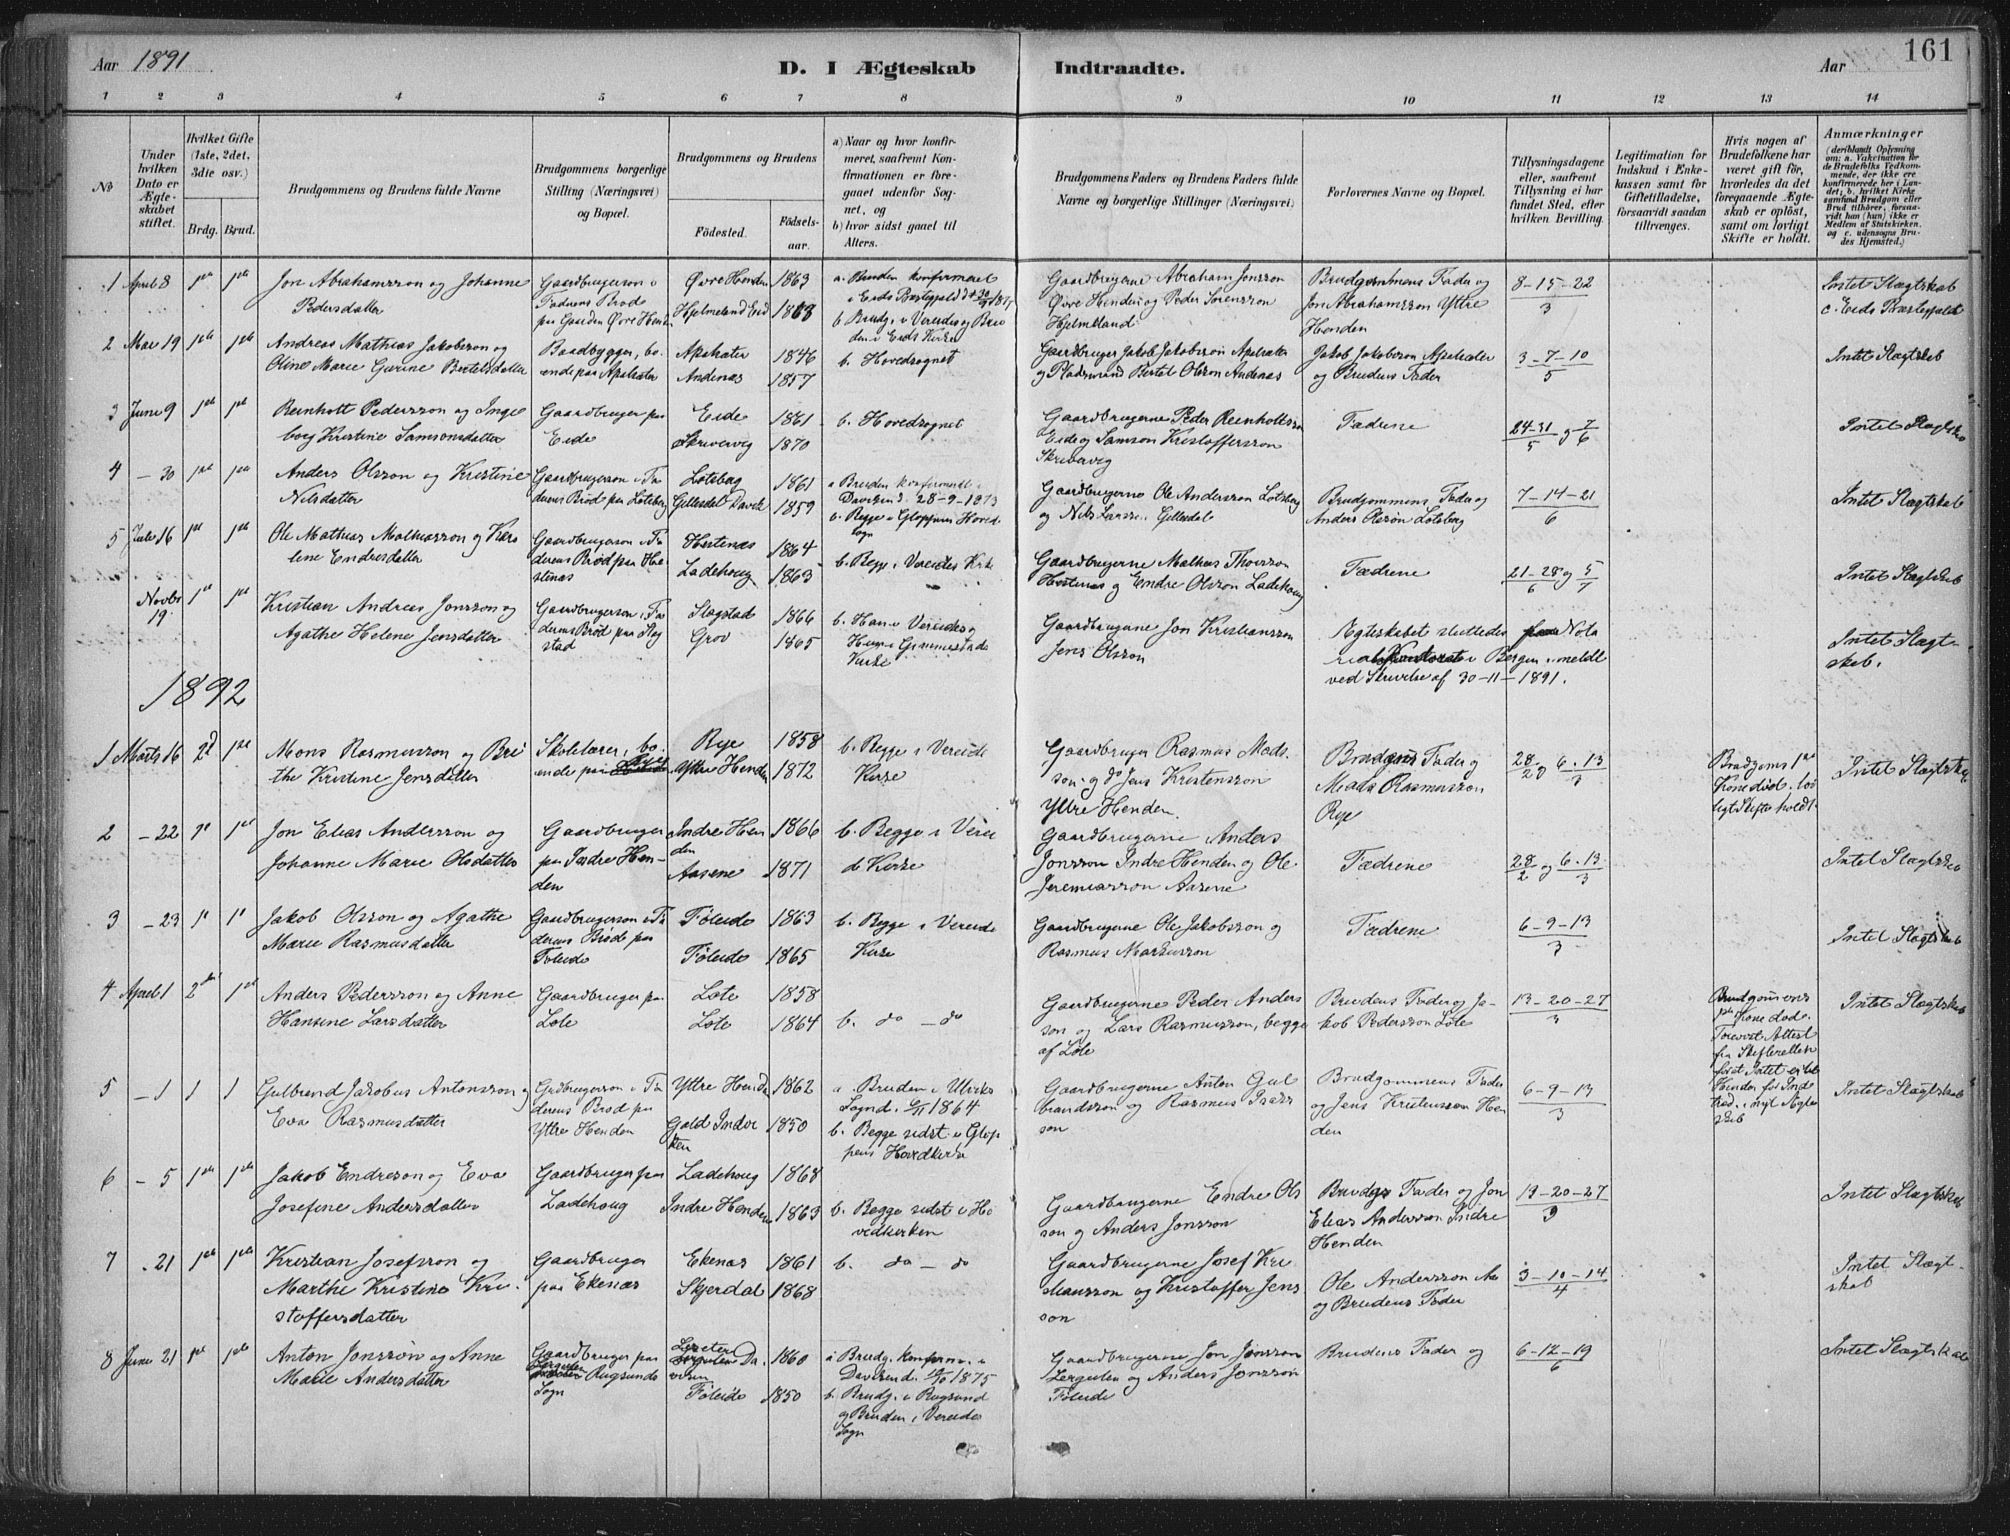 Aar 1891
D. I Ægteskab Indtraadte.
Aar
161
1 2 3 4 5 6 7 8 9 10 11 12 13 14
No
Under hvilken Dato er Ægteskabet stiftet.
Hvilket Gifte (1ste, 2det, 3die osv.)
Brdg. Brud.
Brudgommens og Brudens fulde Navne
Brudgommens borgerlige Stilling (Næringsvei) og Bopæl.
Brudgommens og Brudens
Födested.
Födselsaar.
a) Naar og hvor konfirmeret, saafremt Konfirmationen er foregaaet udenfor Sognet, og
b) hvor sidst gaael til Alters.
Brudgommens Faders og Brudens Faders fulde Navne og borgerlige Stillinger (Næringsvei)
Forlovernes Navne og Bopæl.
Tillysningsdagene eller, saafremt Tillysning ei har fundet Sted, efter hvilken Bevilling.
Legitimation for Indskud i Enkekassen samt for Giftetilladelse, forsaavidt saadan tiltrænges.
Hvis nogen af Brudefolkene har været gift för, hvorledes da det foregaaende Ægteskab er oplöst, samt om lovligt Skifte er holdt.
Anmærkninger
(deriblandt Oplysning om: a. Vakcination for de Brudefolks Vedkommende, der ikke ere konfirmerede her i Landet; b. hvilket Kirkesamfund Brudgom eller Brud tilhörer, forsaavidt han (hun) ikke er Medlem af Statskirken, og c. udensogns Brudes Hjemsted.)
1 April 8 1ste 1ste Jon Abrahamsson og Johanne
Pedersdatter
Gaardbrugerson i
Faderens Bröd
paa Gaarden Övre Henden
Övre Henden 1863
Hjelmeland Eid 1868
a. Bruden konfirmeret
i Eids Præstegjeld
b. Brudg. i Vereides og Bru
den i Eids Kirke
Gaardbrugerne Abraham Jonsson
Övre Henden og Peder Sörensson
Hjelmeland
Brudgommens Fader og
Jon Abrahamsson Yttre
Henden
8-15-22
3
Intet Slægtskab
c. Eids Præstegjeld
2 Mai 19 1ste 1ste Andreas Mathias Jakobsson og
Oline Marie Gurine Bertelsdatter
Baadbygger, bo-
ende paa Apalsæter
Apalsæter 1846
Andenæs 1857
b. Hovedsognet
Gaardbruger Jakob Jakobsson Apalsæter
og Pladsmand Bertel Olsson Andenæs
Jakob Jakobsson Apalsæter
og Brudens Fader
3-7-10
5
Intet Slægtskab
3 June 9 1ste 1ste Reinholt Pedersson og Inge
borg Kristine Samsonsdatter
Gaardbruger paa
Eide
Eide 1861
Skrivarvig 1870
b. Hovedsognet
Gaardbrugerne Peder Reinholtsson
Eide og Samson Kristoffersson
Skrivarvig
Fædrene
24-31 og 7
5 6
Intet Slægtskab
4 - 30 1ste 1ste Anders Olsson og Kristine
Nilsdatter
Gaardbrugerson i Fa
derens Bröd paa Lotsberg
Lotsberg 1861
Gillesdal Davik 1859
a Bruden konfirmeret i
Daviken d. 28-9-1873
b. Begge i Gloppens Hoved
sogn
Gaardbrugerne Ole Andersson Lotsberg
og Nils Larss. Gillesdal
Brudgommens Fader og
Anders Olsson Lotsberg
7-14-21
6
Intet Slægtskab
5 Juli 16 1ste 1ste Ole Mathias Mathiasson og Karo
line Endresdatter
Gaardbrugerson i Fa
derens Bröd paa He
stenæs
Hestenæs 1864
Ladehoug 1863
b. Begge i Vereides Kirke
Gaardbrugerne Mathias Thorsson
Hestenæs og Endre Olsson Ladehoug
Fædrene
21-28 og 5
6 7
Intet Slægtskab
Novbr 19. 1ste 1ste Kristian Andreas Jonsson og
Agathe Helene Jensdatter
Gaardbrugerson i Fa
derens Bröd paa Slag
stad
Slagstad 1866
Grov 1865
b. Han i Vereides og
Hun i Gimmestads
Kirke
Gaardbrugerne Jon Kristiansson
Jens Olsson
Ægteskabet sluttedes Nota
rialkontoret i Bergen, meldt
ved Skrivelse af 30-11-1891.
Intet Slægt-
skab.
1892
1 Marts 16 2d 1ste Mons Rasmusson og Bri
the Kristine Jensdatter
Skolelærer, bo-
ende paa Rye
Rye 1858
Yttre Henden 1872
b. Begge i Vereide
Kirke
Gaardbruger Rasmus Mads-
son og do Jens Kristensson
Yttre Henden.
Brudgoms Fader og
Mads Rasmusson
Rye
28 og 6. 13
2 3
Brudgoms 1ste
Kone död. Lov
ligt Skifte holdt.
Intet Slægtskab
2 - 22 1e 1ste Jon Elias Andersson og
Johanne Marie Olsdatter
Gaardbruger
paa Indre Hen-
den
Indre Hen
den 1866
Aasene 1871
b. Begge i Verei
de Kirke
Gaardbrugerne Anders
Jonsson Indre Henden og Ole
Jeremiasson Aasene
Fædrene
28 og 6. 13
2 3
Intet Slægtskab
3 - 23 1e 1e Jakob Olsson og Agathe
Marie Rasmusdatter
Gaardbrugerson i Fa
derens Bröd paa
Föleide
Föleide 1863
Föleide 1865
b. Begge i Vereide
Kirke
Gaardbrugerne Ole Jakobsson og
Rasmus Markusson
Fædrene
6-9-13
3
Intet Slægtskab
4 April 1 2den 1ste Anders Pedersson og Anne
Hansine Larsdatter
Gaardbruger paa
Löte
Löte 1858
Löte 1864
b. do - do
Gaardbrugerne Peder Anders
son og Lars Rasmusson, begge
af Löte
Brudens Fader og Ja-
kob Pedersson Löte
13-20-27
3
Brudgommens
Kone död.
Forevist Attest
fra Skifteretten
Intet Slægtskab
5 - 1 1 1 Gulbrand Jakobus Antonsson og
Eva Rasmusdatter
Grdbrugerson i Fa
derens Bröd paa
Yttre Henden
Yttre Henden 1862
Gald Indvi
ken 1850
a Bruden i Utviks
Sogn d. 1864
b. Begge sidst i Glop
pens Hovedkirke
Gaardbrugerne Anton Gul
brandsson og Rasmus Isaks
son
Brudgommens Fader
og Jens Kristensson Hen
den
6-9-13
3
Intet Slægtskab
6 - 5 1ste 1ste Jakob Endreson og Eva
Josefine Andersdatter
Gaardbruger paa
Ladehoug
Ladehoug 1868
Indre Henden 1863
b. Begge sidst i Ho
vedkirken
Gaardbrugerne Endre Ols
son og Anders Jonsson
Brudgs Fader og Jon
Elias Andersson Indre
Henden
13-20-27
3
Intet Slægtskab
7 - 21 1ste 1ste Kristian Josefsson og
Marthe Kristine Kri-
stoffersdatter
Gaardbruger
paa Ekenæs
Ekenæs 1861
Skjerdal 1868
b. do - do
Gaardbrugerne Josef Kri
stiansson og Kristoffer Jens
son
Ole Andersson
og Brudens Fader
3-10-14
4
Intet Slægt-
skab
8 June 21 1ste 1ste Anton Jonsson og Anne
Marie Andersdatter
Gaardbruger paa
Rugsunds
Sogn
Da-
viken 1860
Föleide 1850
a Brudg. konfirm. i
Daviken d. 1875
b. Brudg. i Rugsund
og Bruden i Vereides
Sogn
Gaardbrugerne Jon Jonsson
og Anders Jonsson
Föleide
Brudens Fader og
6-12-19
6
Intet Slægtskab